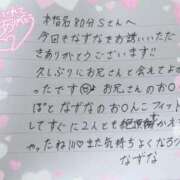 本指名80分Sさんへ
今回もなずなをお誘いいただき
ありがとうございます!!
久しぶりにお兄さんと会えてよか
ったです お兄さんのお○
ぽとなずなのお○んこフィット
してすぐに2人とも
やったね川 気持ちよくなろう
なずな